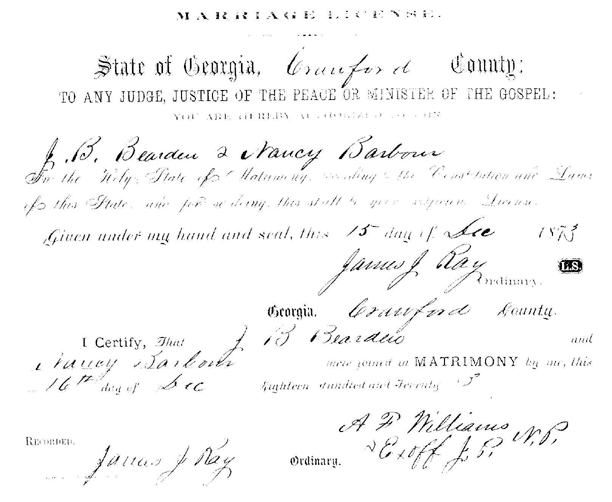 MARRIAGE LICENSE.
State of Georgia, Crawford County:
TO ANY JUDGE, JUSTICE OF THE PEACE OR MINISTER OF THE GOSPEL:
YOU ARE HEREBY AUTHORIZED TO JOIN
J. B. Bearden & Nancy Barbour
In the Holy State of Matrimony, according to the Constitution and Laws
of this State, and for so doing, this shall be your License.
Given under my hand and seal, this 15 day of Dec 1873
James J Ray L.S.
Ordinary.
Georgia. Crawford County.
I Certify, That J B Bearden and
Nancy Barbour were joined in MATRIMONY by me, this
16th day of Dec Eighteen hundred and Seventy 3
A F Williams N.P.
& Exoff J. P.
RECORDED.
James J Ray Ordinary.